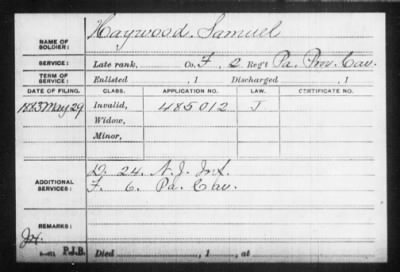 NAME OF SOLDIER: Haywood, Samuel
SERVICE: Late rank, Co. F, 2 Reg't Pa. Prov. Cav.
TERM OF SERVICE: Enlisted , 1 Discharged , 1
DATE OF FILING. CLASS. APPLICATION NO. LAW. CERTIFICATE NO.
1883 May 29 Invalid, 485012 J
Widow,
Minor,
ADDITIONAL SERVICES: D. 24. N.J. Inf.
F. 6. Pa. Cav.
REMARKS:
P.J.B. Died , 1 , at